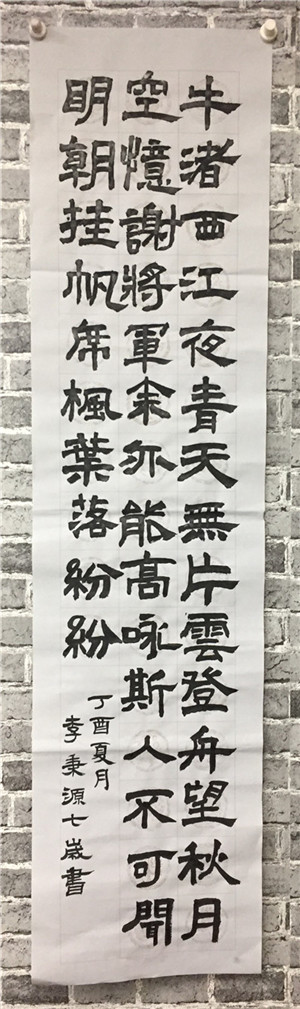 牛渚西江夜青天無片雲登舟望秋月
空憶謝將軍余亦能高咏斯人不可聞
明朝挂帆席楓葉落紛紛
丁酉夏月
李秉源七歲書